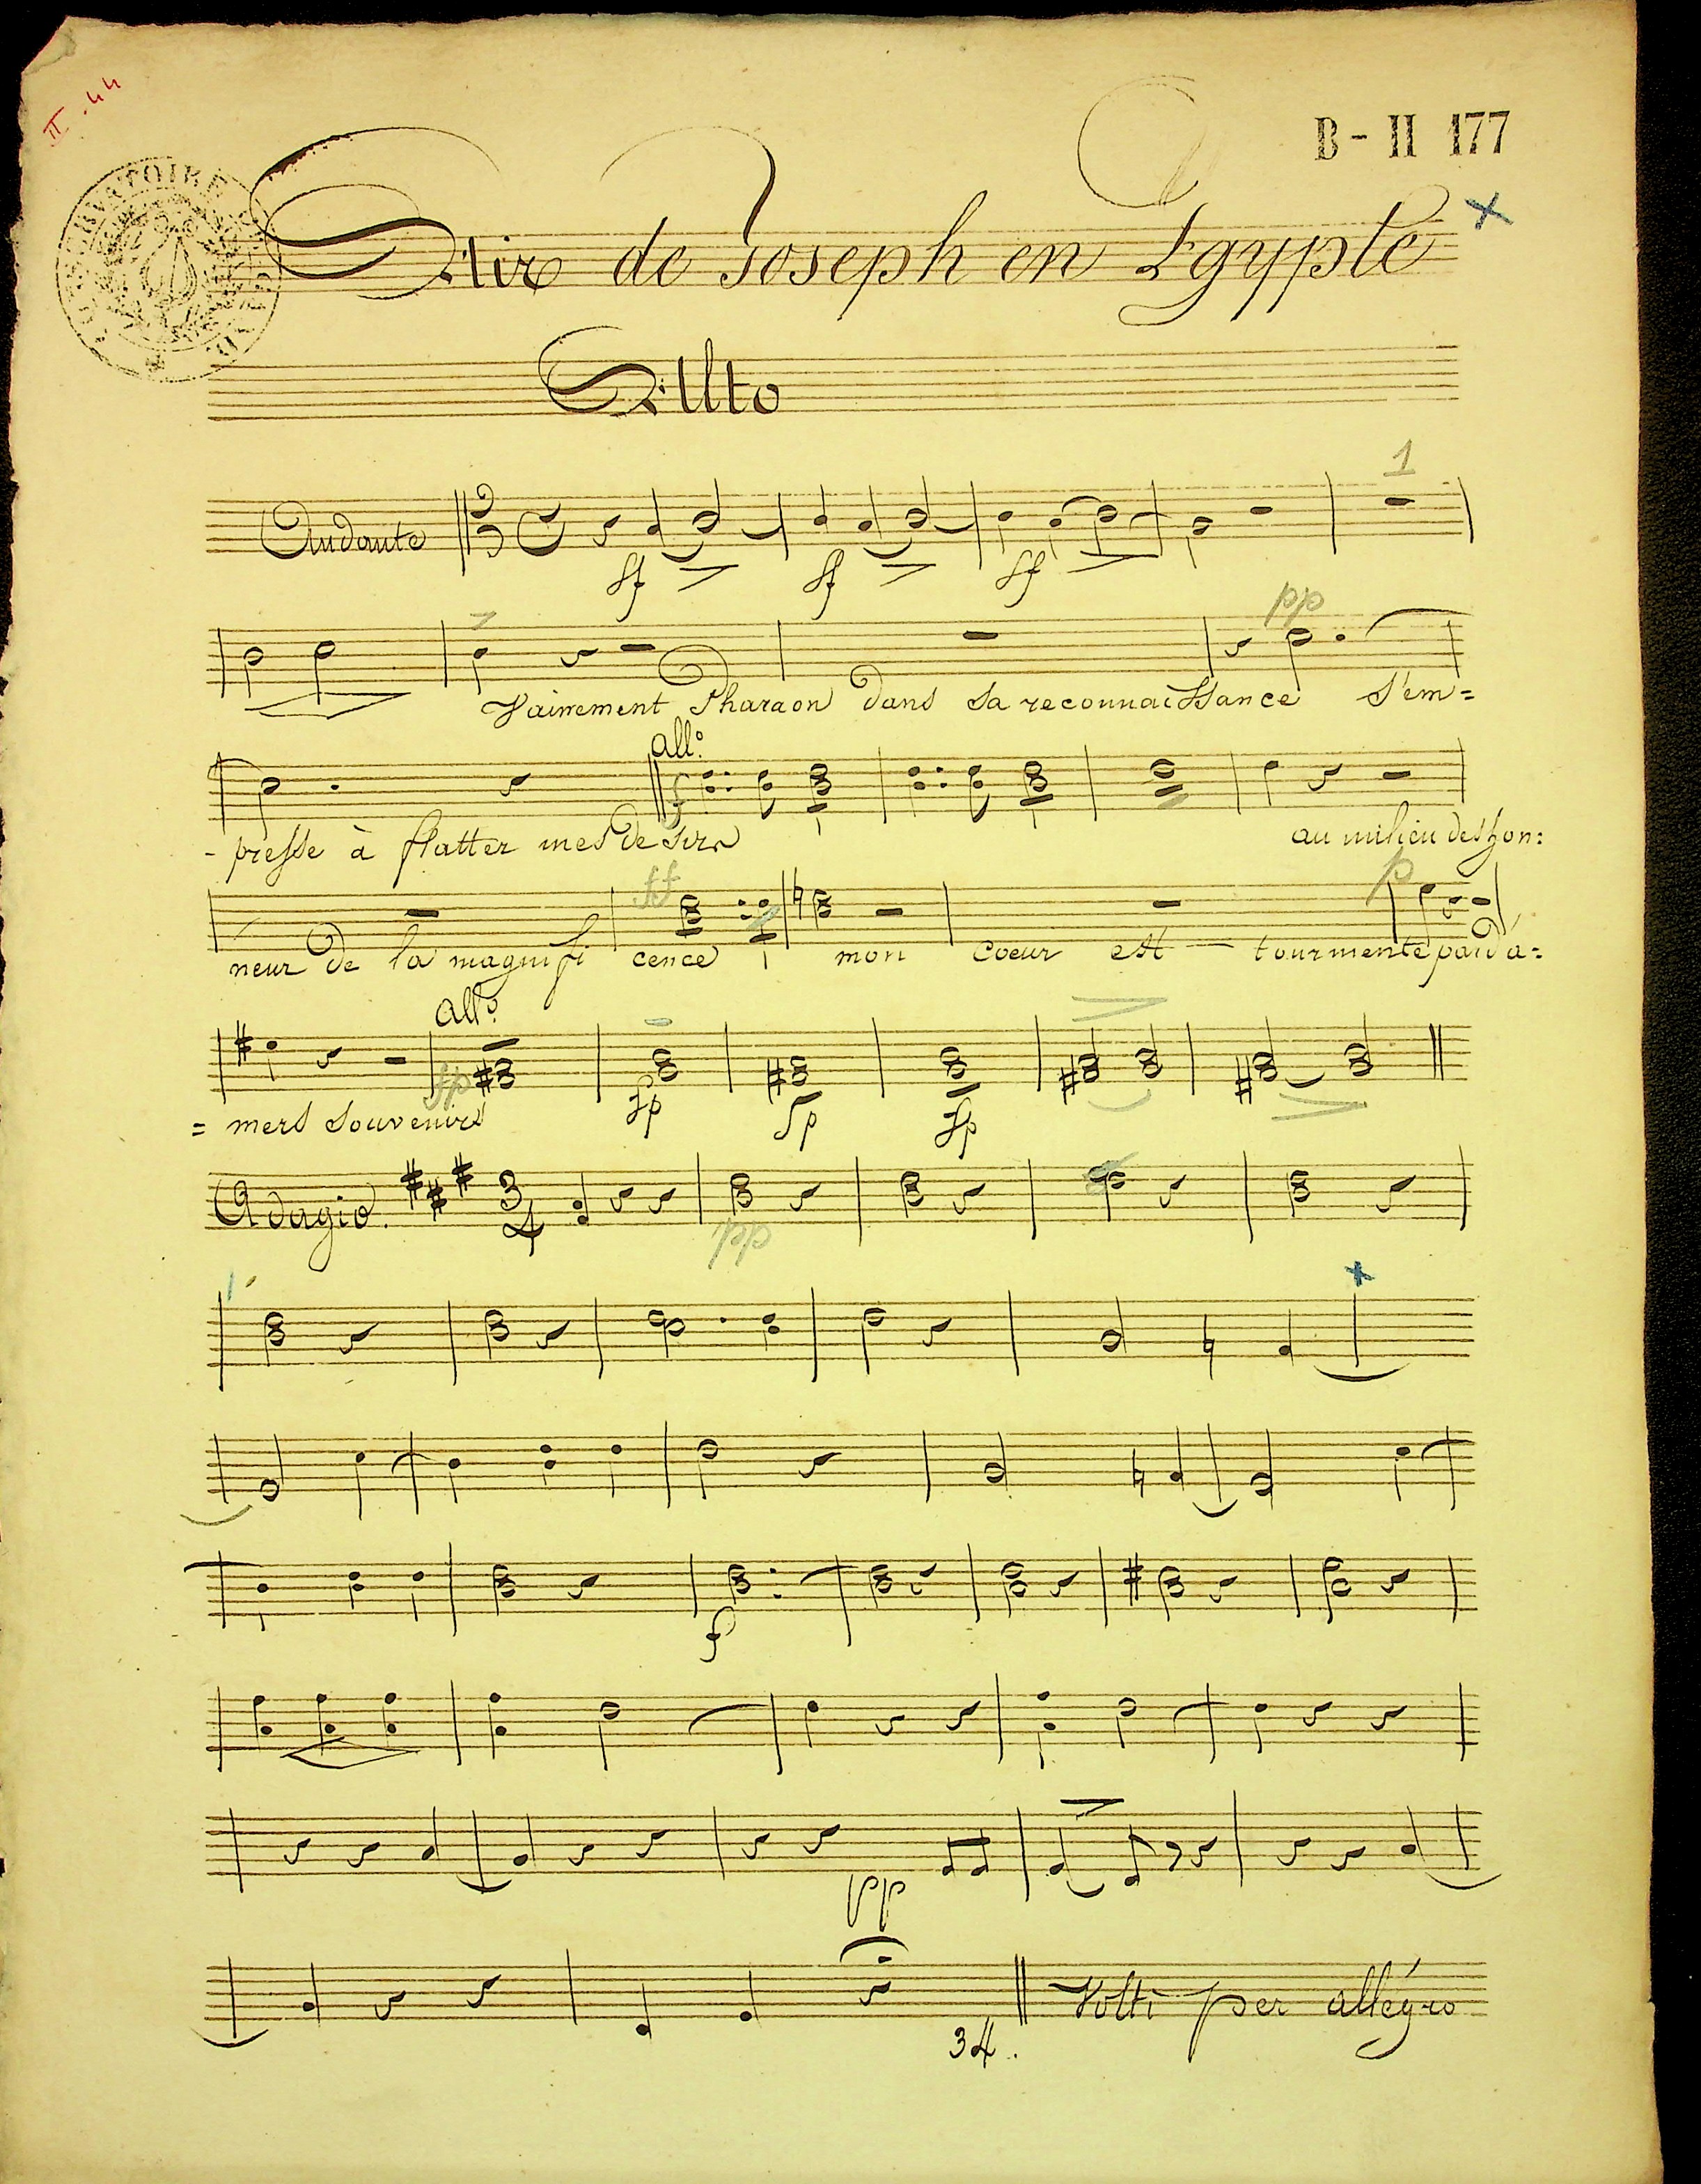 II . 44
B - II 177
Air de Joseph en Egypte
Alto
1
Andante
ff ff ff
pp
Vainement Pharaon dans sa reconnaissance s'em=
all:o
f
- presse à flatter mes desirs au milieu des hon:
ff p
neur de la magnifi cence mon coeur est — tourmente par d'a=
all:o
fp fp fp fp
= mers souvenirs
Adagio. 3/4
pp
f
pp
34.
Volti per allégro